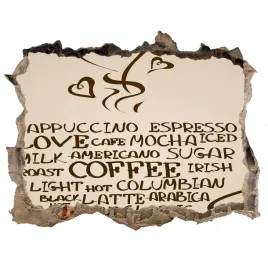 APPUCCINO ESPRESSO
LOVE CAFE MOCHA ICED
MILK AMERICANO SUGAR
ROAST COFFEE IRISH
LIGHT HOT COLUMBIAN
BLACK LATTE ARABICA